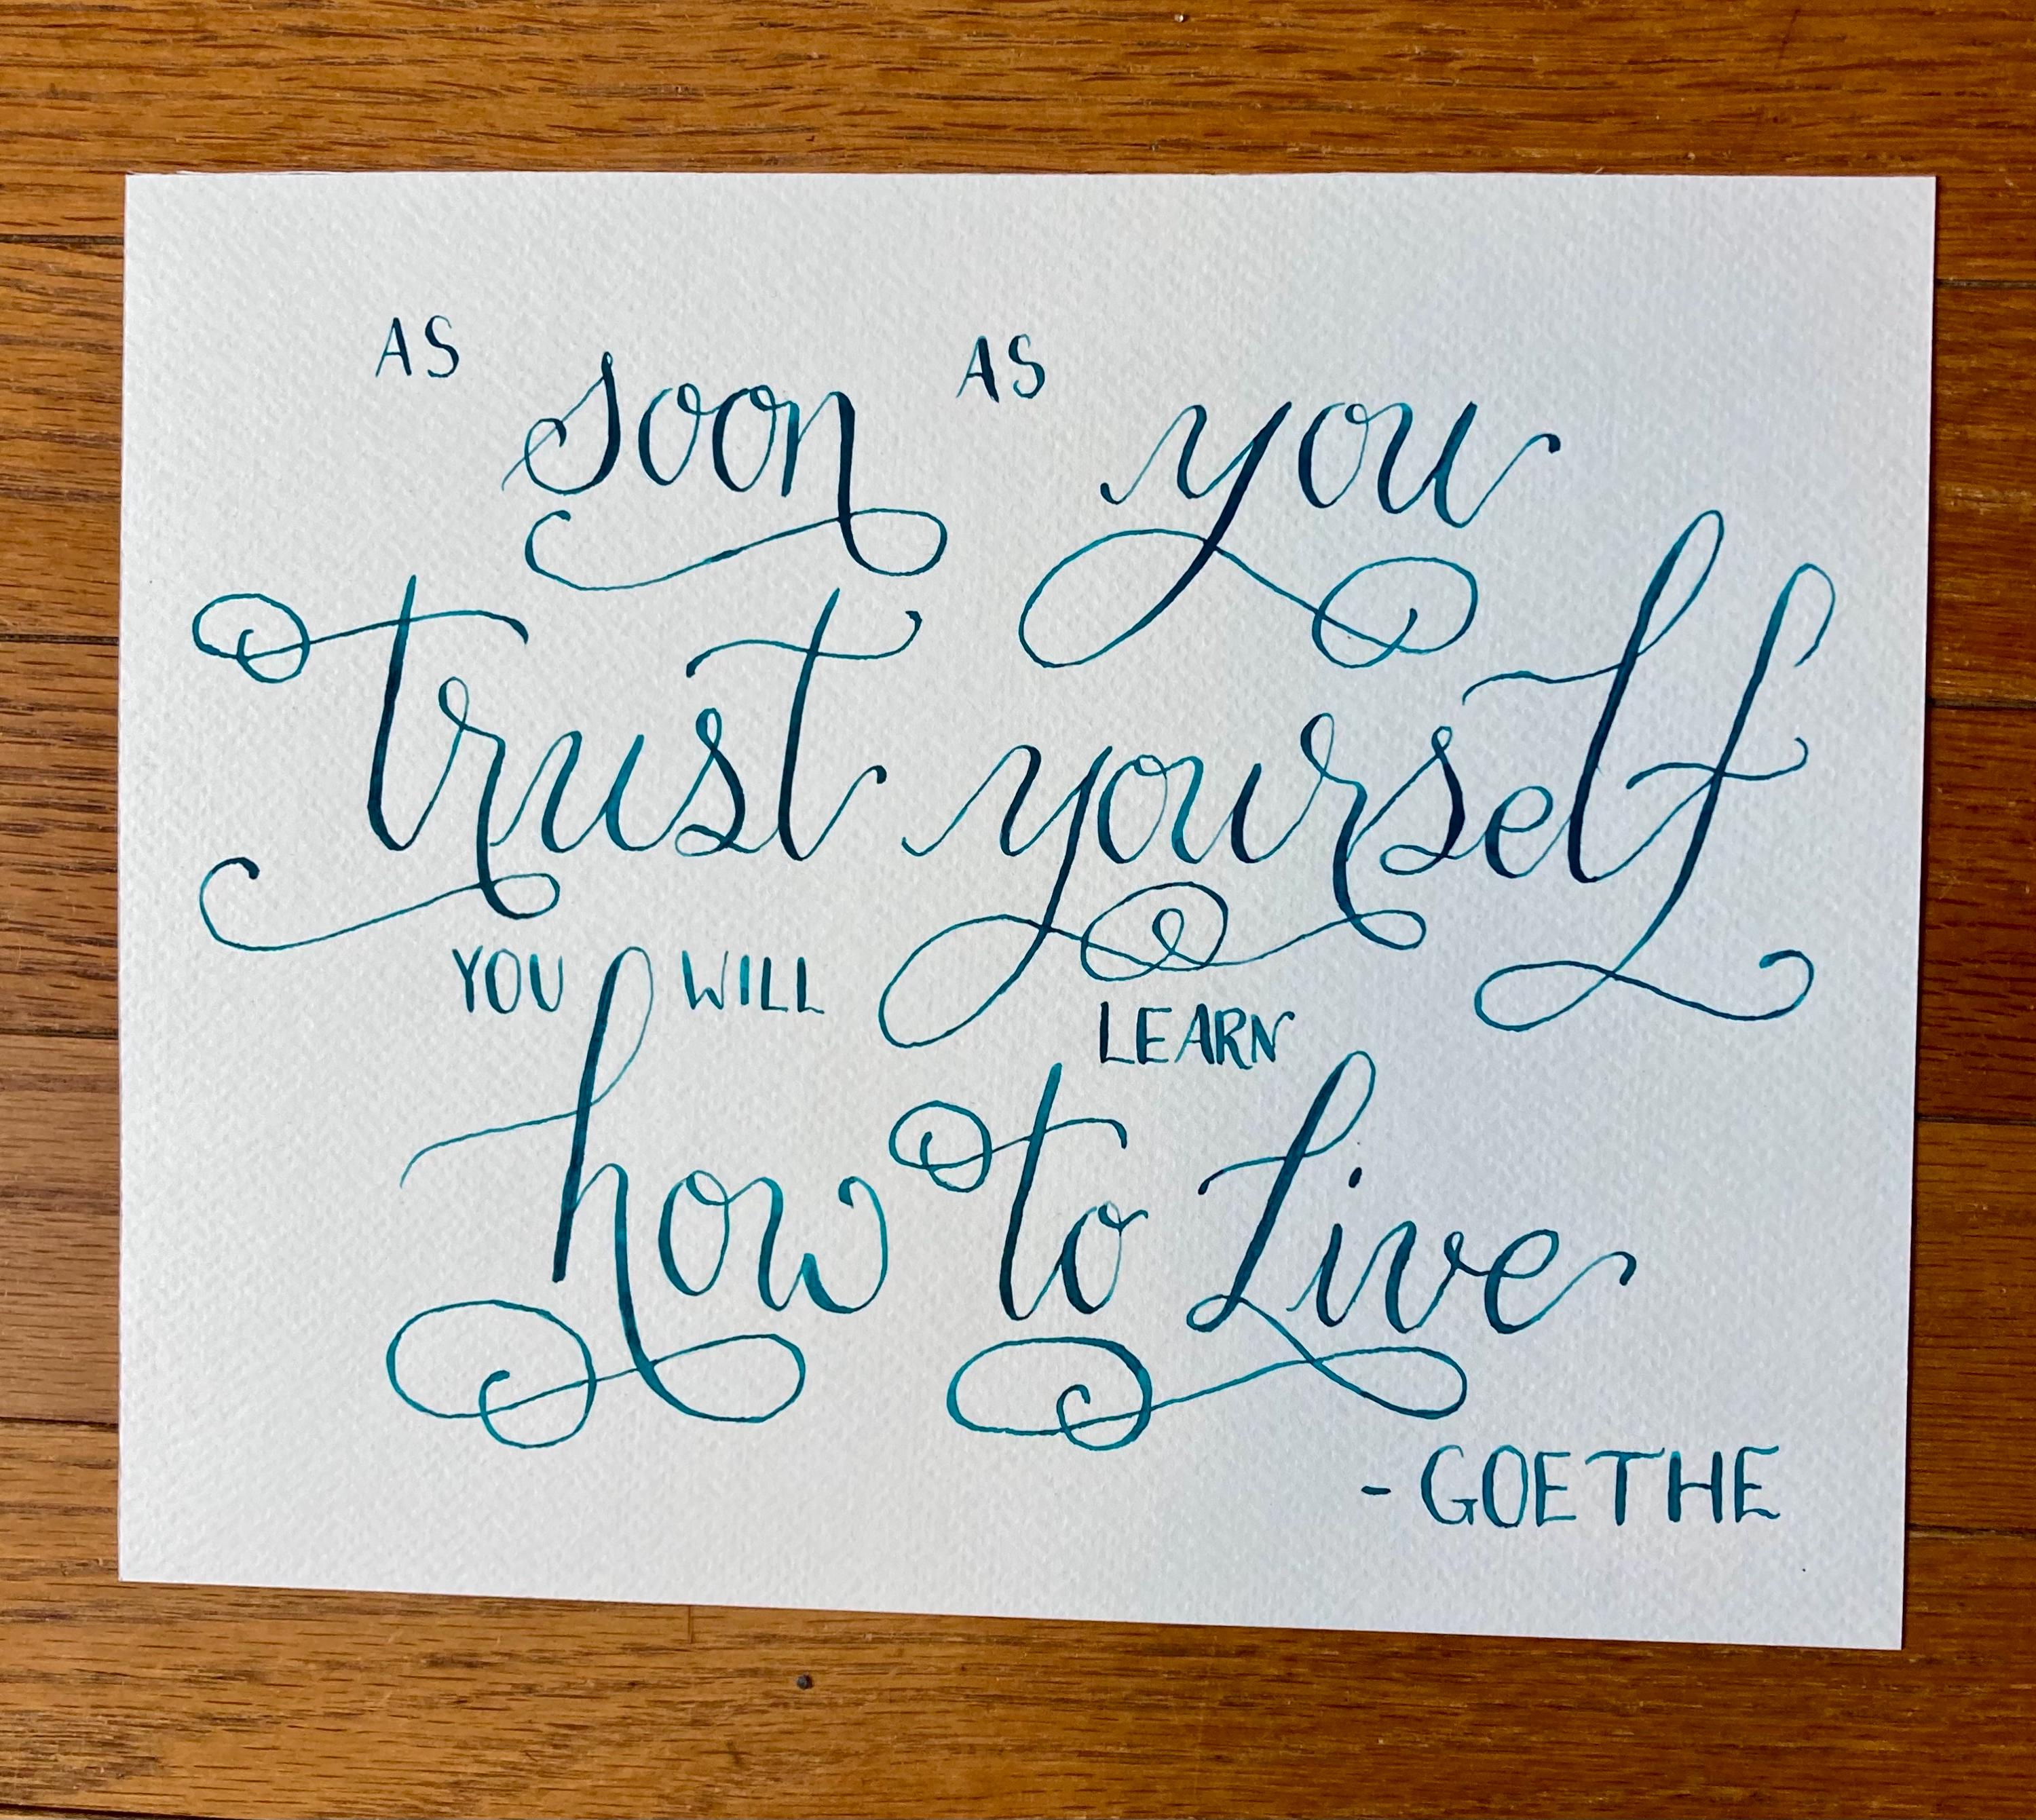 AS soon AS you
trust yourself
YOU WILL LEARN
how to Live
- GOETHE